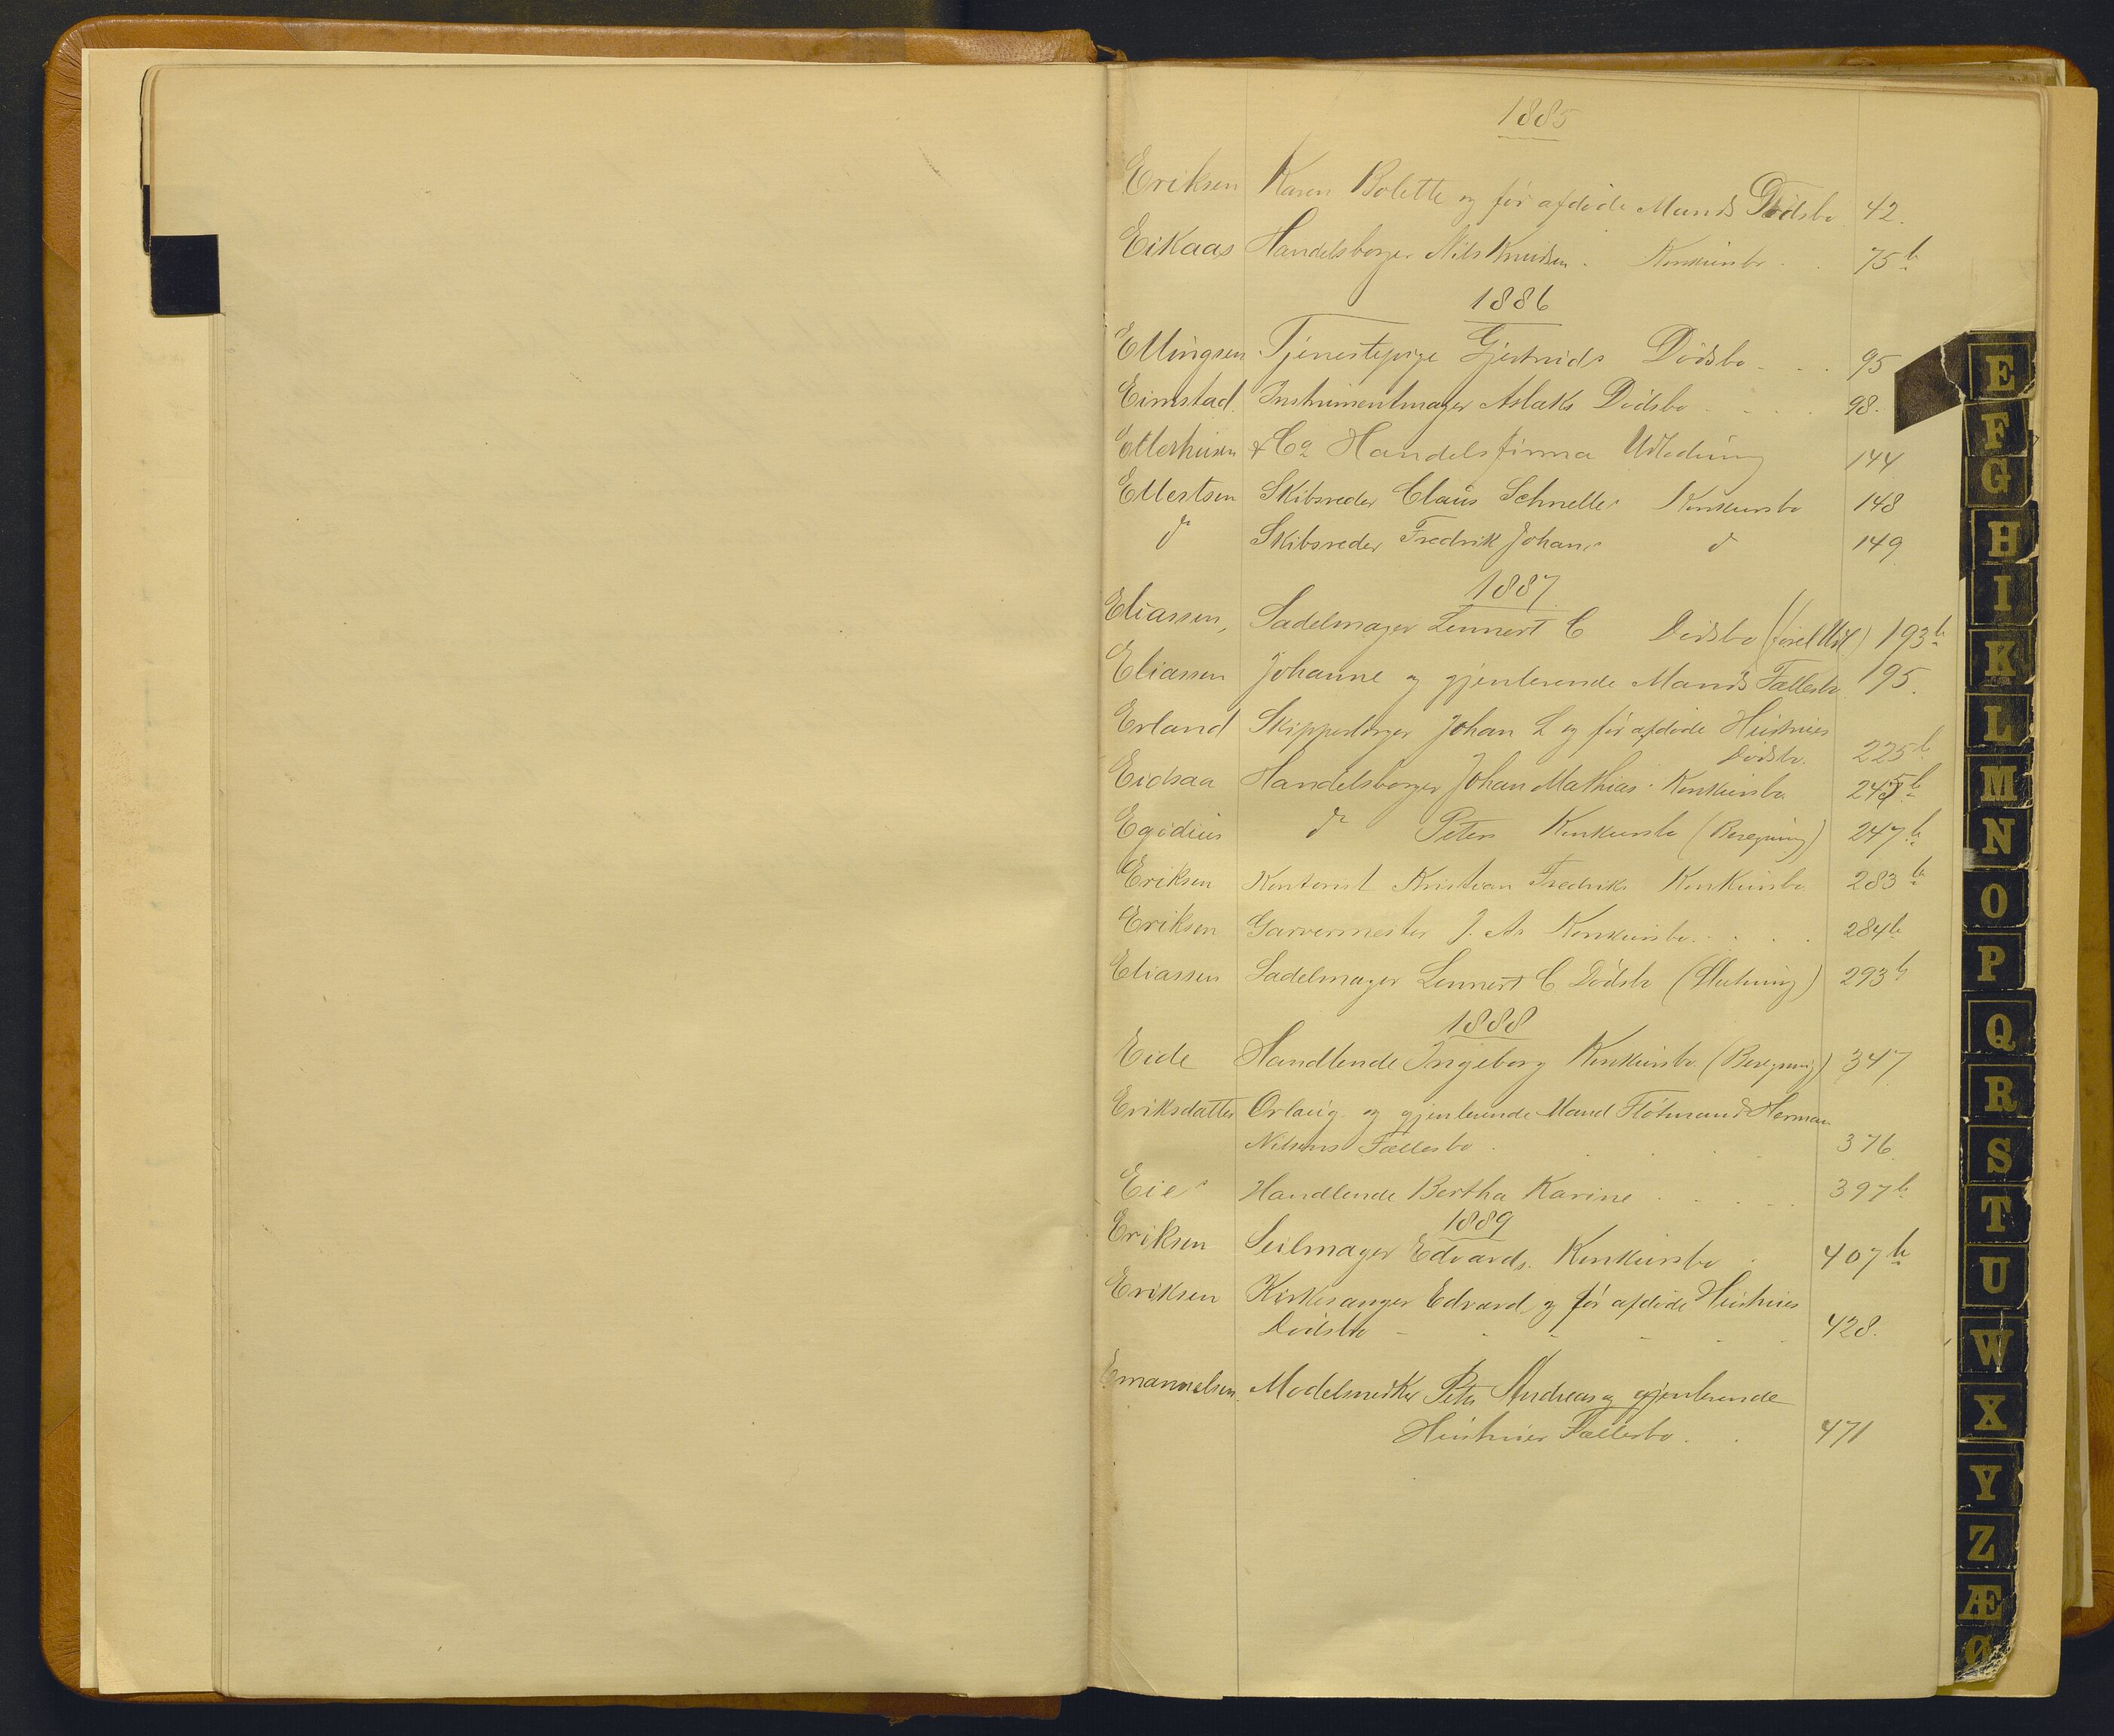 1885
Eriksen Karen Bolette og før afdøde Mands Dødsbo 42.
Eikaas Handelsborger Nils Knudsen. Konkursbo 75b
1886
Ellingsen Tjenestepige Gjertruds Dødsbo 95
Eimstad. Instrumentmager Aslaks Dødsbo 98.
& Co Handelsfirma Udlodning 144
Ellertsen Skibsreder Claus Schnelle Konkursbo 148
do Skibsreder Fredrik Johans do 149
1887
Eliassen, Sadelmager Lennert C Dødsbo 193b
Eliassen Johanne og gjenlevende Mands Fællesbo 195.
Erland Skipperborger Johan L og før afdøde Hustrues
Dødsbo. 225b
Eidsaa Handelsborger Johan Mathias Konkursbo 245b
Egidius do Peters Konkursbo (Beregning) 247b
Eriksen Kontorist Kristian Fredriks Konkursbo 283b
Eriksen Garvermester J. As Konkursbo 284b
Eliassen Sadelmager Lennert C Dødsbo (Slutning) 293b
1888
Eide Handlende Ingeborg Konkursbo (Beregning) 347
Eriksdatter Orlaug og gjenlevende Mand Fløtmand Herman
Nilsens Fællesbo 376
Eie Handlende Bertha Karine 397b
1889
Eriksen Seilmager Edvards. Konkursbo 407b
Eriksen Kirkesanger Edvard og før afdøde Hustrues
Dødsbo 428.
Emanuelsen. Modelsnedker Peter Andreas og gjenlevende
Hustrues Fællesbo 471
E
F
G
H
I
K
L
M
N
O
P
Q
R
S
T
U
W
X
Y
Z
Æ
Ø